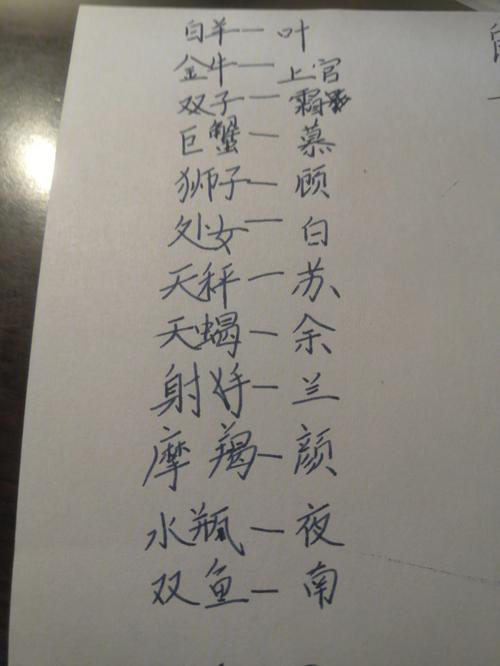 白羊—叶
金牛—上官
双子—霜
巨蟹—慕
狮子—顾
处女—白
天秤—苏
天蝎—余
射手—兰
摩羯—颜
水瓶—夜
双鱼—南